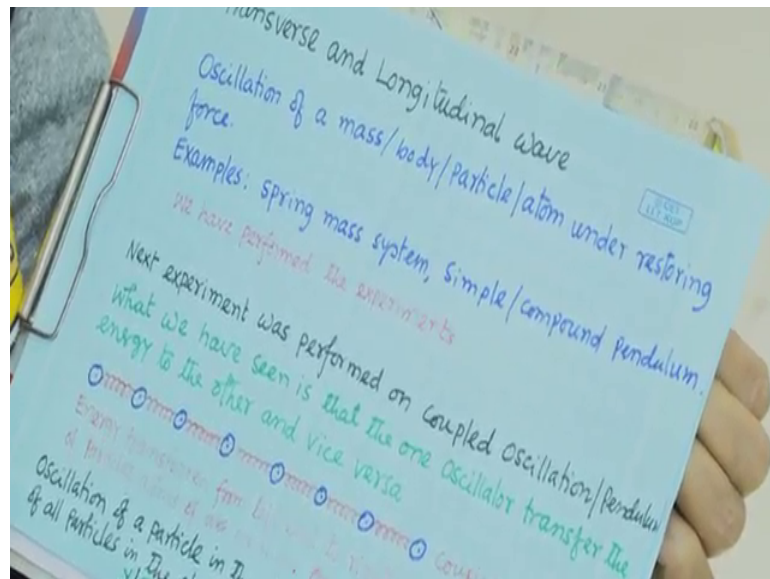 Transverse and Longitudinal wave
Oscillation of a mass/body/particle/atom under restoring
force.
Examples: spring mass system, simple/compound pendulum.
We have performed the experiments
Next experiment was performed on coupled oscillation/pendulum
What we have seen is that the one oscillator transfer the
energy to the other and vice versa
Energy
Oscillation of a particle in
of all particles in the